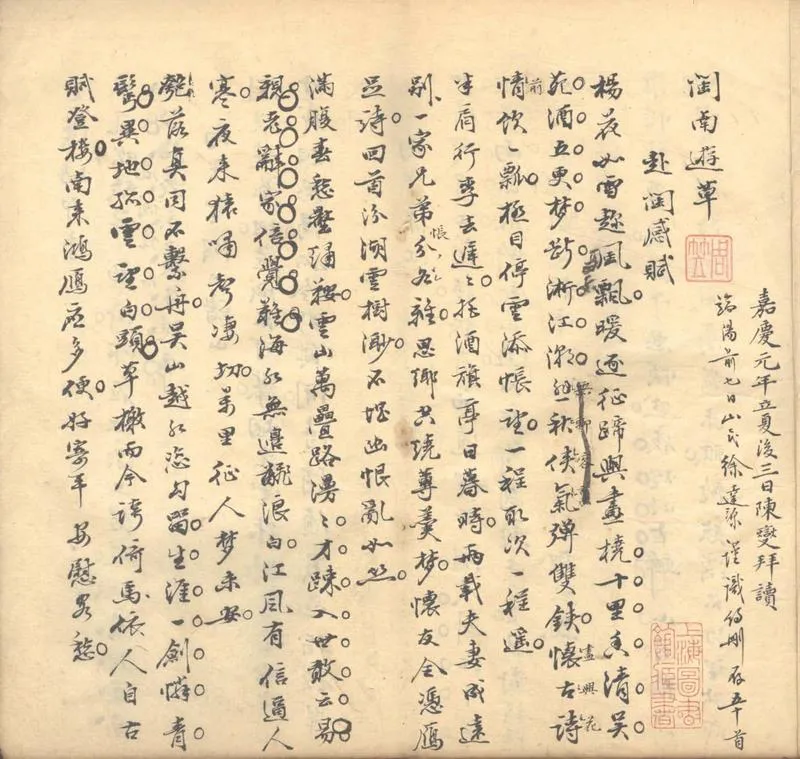 嘉慶元年立夏後三日陳燮拜讀
端陽前七日山民徐達源謹識 約刪存五十首
閩南遊草
赴閩感賦
楊花如雪趂風飄暖逐征蹄興畫橈十里香清吳
苑酒五更夢斷浙江潮一秋俠氣彈雙鋏懷古詩
情飲一瓢極目停雲添悵望一程取次一程遥
半肩行李去遲〻把酒旗亭日暮時兩載夫妻成遠
别一家兄弟分各離思鄉共繞蓴羹夢懷友全憑鴈
足詩回首汾湖雲樹渺不堪幽恨亂如絲
滿腹春愁壓繡鞍雲山萬疊路漫〻才疎入世敢云易
親老辭家信覺難海水無邊翻浪白江風有信逼人
寒夜来猿嘯聲凄切萬里征人夢未安
匏落真同不繫舟吳山越水恣勾留生涯一劍憐青
鬢異地孤雲望白頭草檄而今誇倚馬依人自古
賦登樓南来鴻雁应多便好寄平安慰客愁
上海圖書館藏書